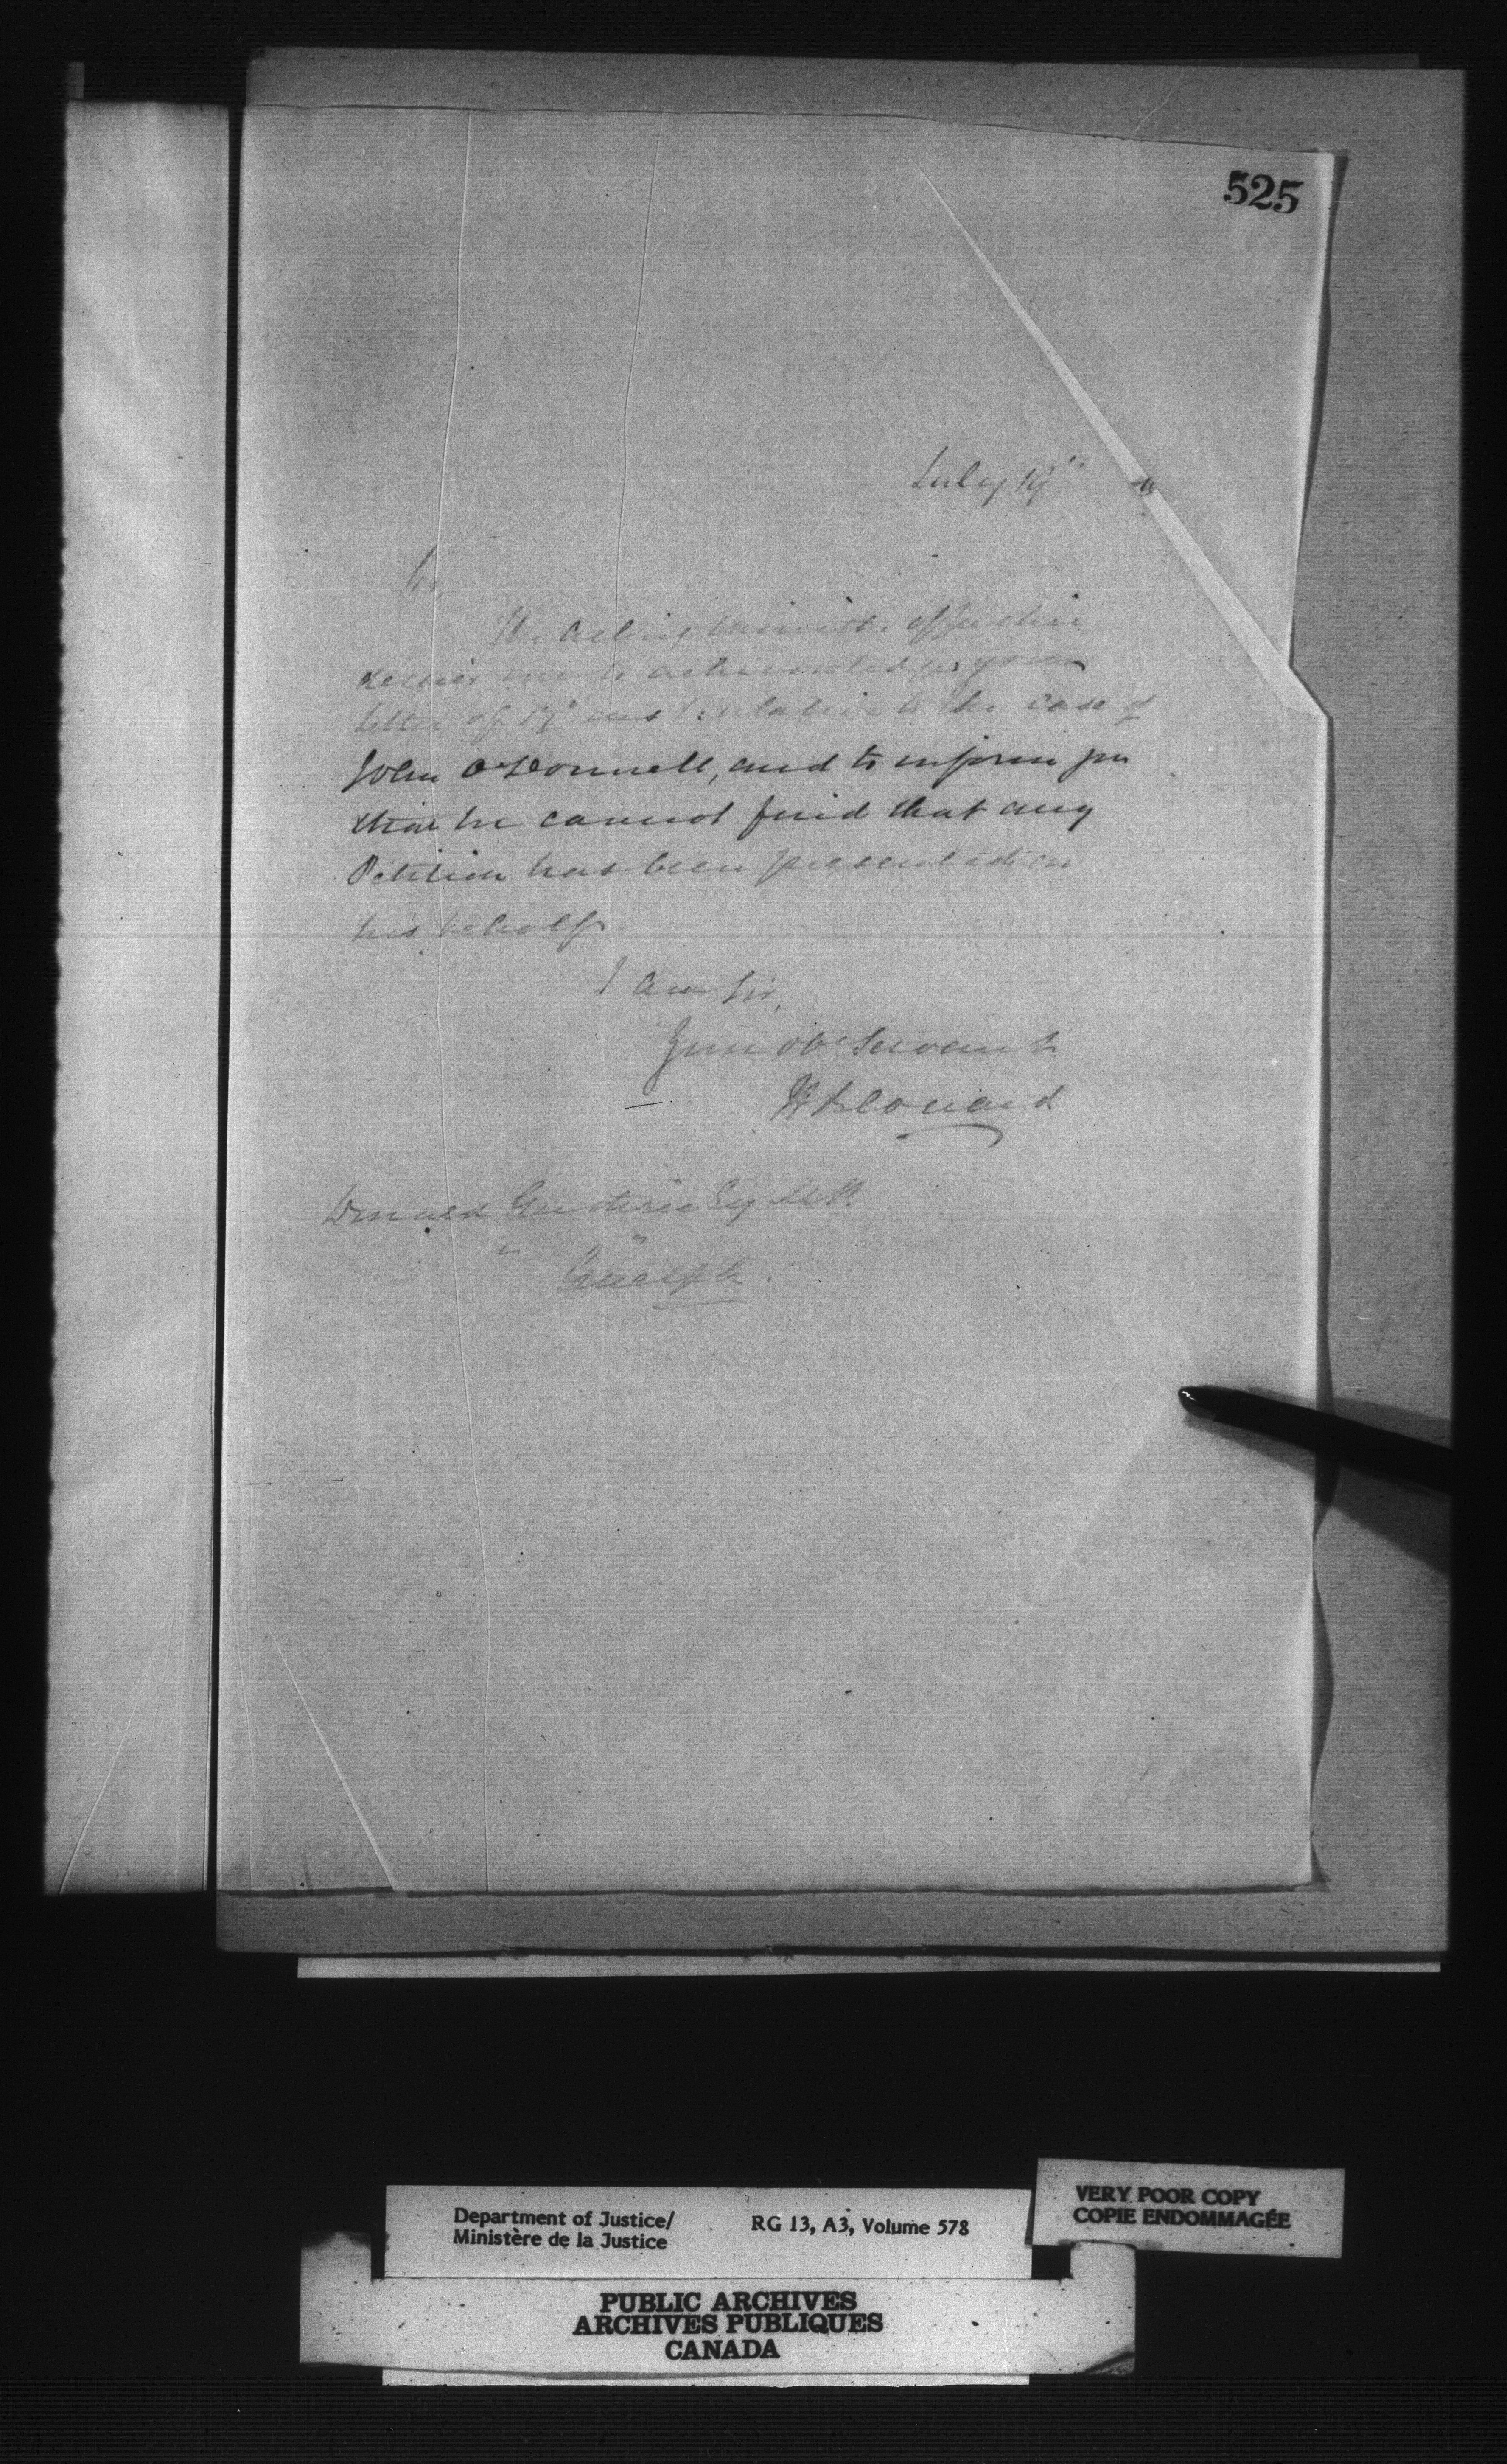 525
July 19th
Sir,
The Acting Minister of Justice
desires me to acknowledge your
letter of 17th inst relative to the case of
John O'Donnell, and to inform you
that he cannot find that any
Petition has been presented on
his behalf
I am Sir,
Your obt Servant
Donald Guthrie Esq M.P.
" "
Guelph.
Department of Justice/
Ministère de la Justice
RG 13, A3, Volume 578
VERY POOR COPY
COPIE ENDOMMAGÉE
PUBLIC ARCHIVES
ARCHIVES PUBLIQUES
CANADA